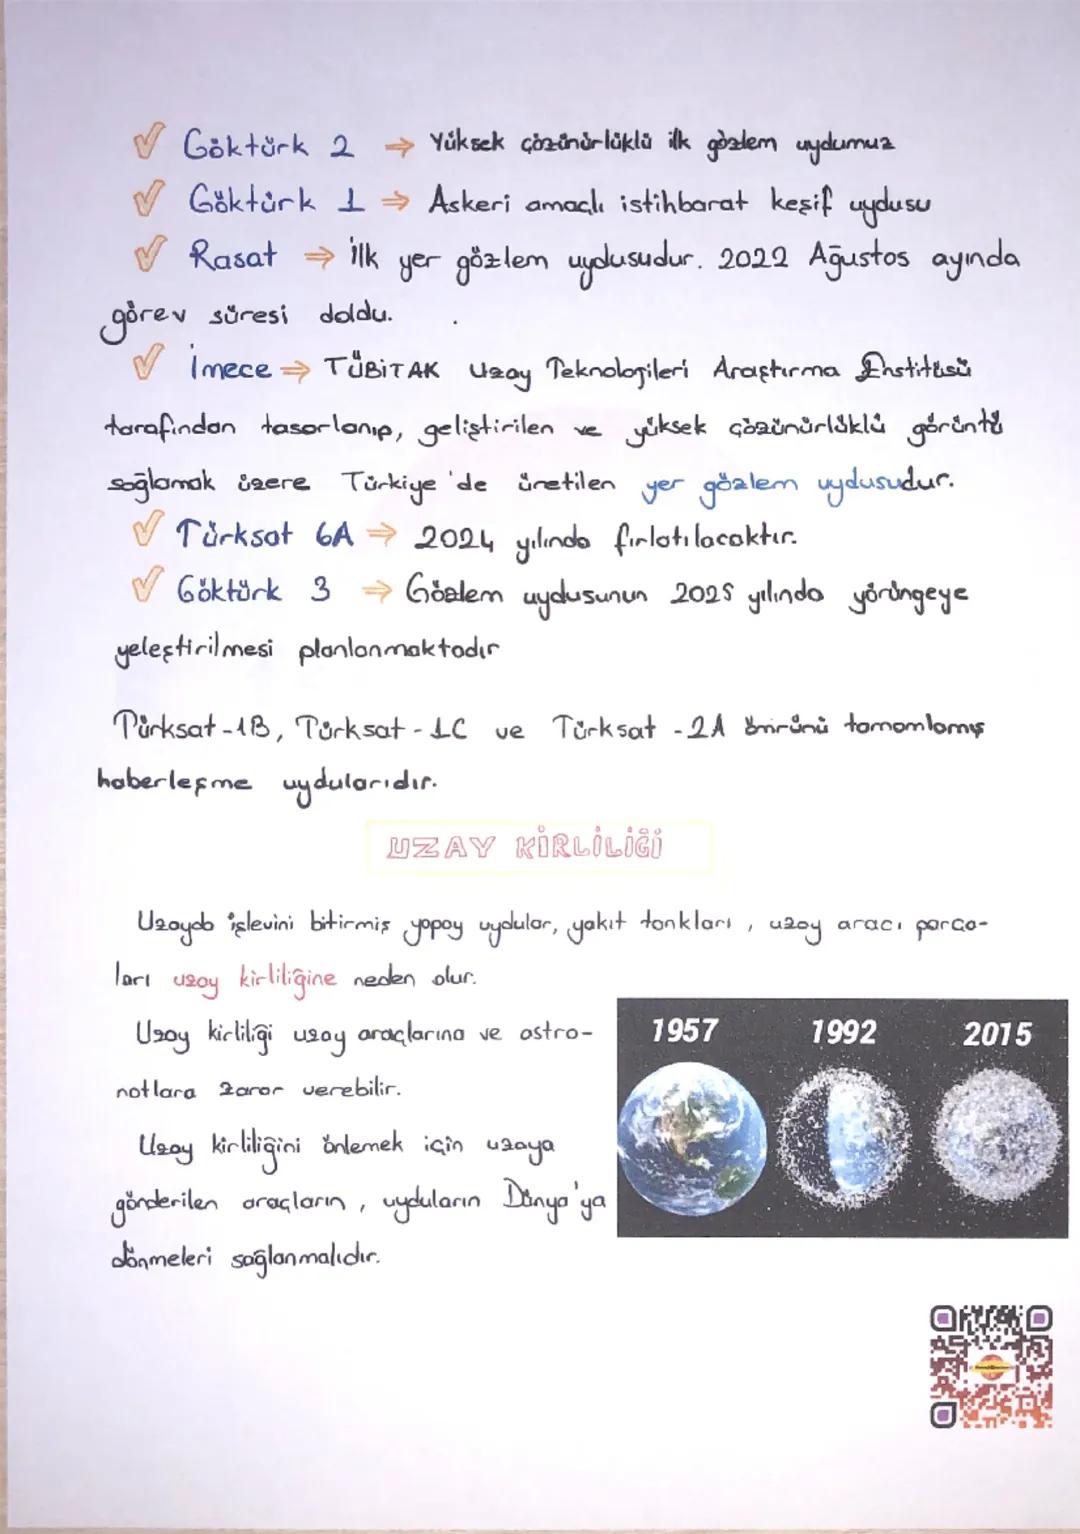 Göktürk 2 ⇒ Yüksek çözünürlüklü ilk gözlem uydumuz
Göktürk 1 ⇒ Askeri amaçlı istihbarat keşif uydusu
Rasat ⇒ İlk yer gözlem uydusudur. 2022 Ağustos ayında
görev süresi doldu.
İmece ⇒ TÜBİTAK Uzay Teknolojileri Araştırma Enstitüsü
tarafından tasarlanıp, geliştirilen ve yüksek çözünürlüklü görüntü
sağlamak üzere Türkiye'de üretilen yer gözlem uydusudur.
Türksat 6A ⇒ 2024 yılında fırlatılacaktır.
Göktürk 3 ⇒ Gözlem uydusunun 2025 yılında yörüngeye
yeleştirilmesi planlanmaktadır
Türksat-1B, Türksat-1C ve Türksat-2A ömrünü tamamlamış
haberleşme uydularıdır.
UZAY KİRLİLİĞİ
Uzayda işlevini bitirmiş yapay uydular, yakıt tankları, uzay aracı parça-
ları uzay kirliliğine neden olur.
Uzay kirliliği uzay araçlarına ve astro-
notlara zarar verebilir.
Uzay kirliliğini önlemek için uzaya
gönderilen araçların, uyduların Dünya'ya
dönmeleri sağlanmalıdır.
1957 1992 2015